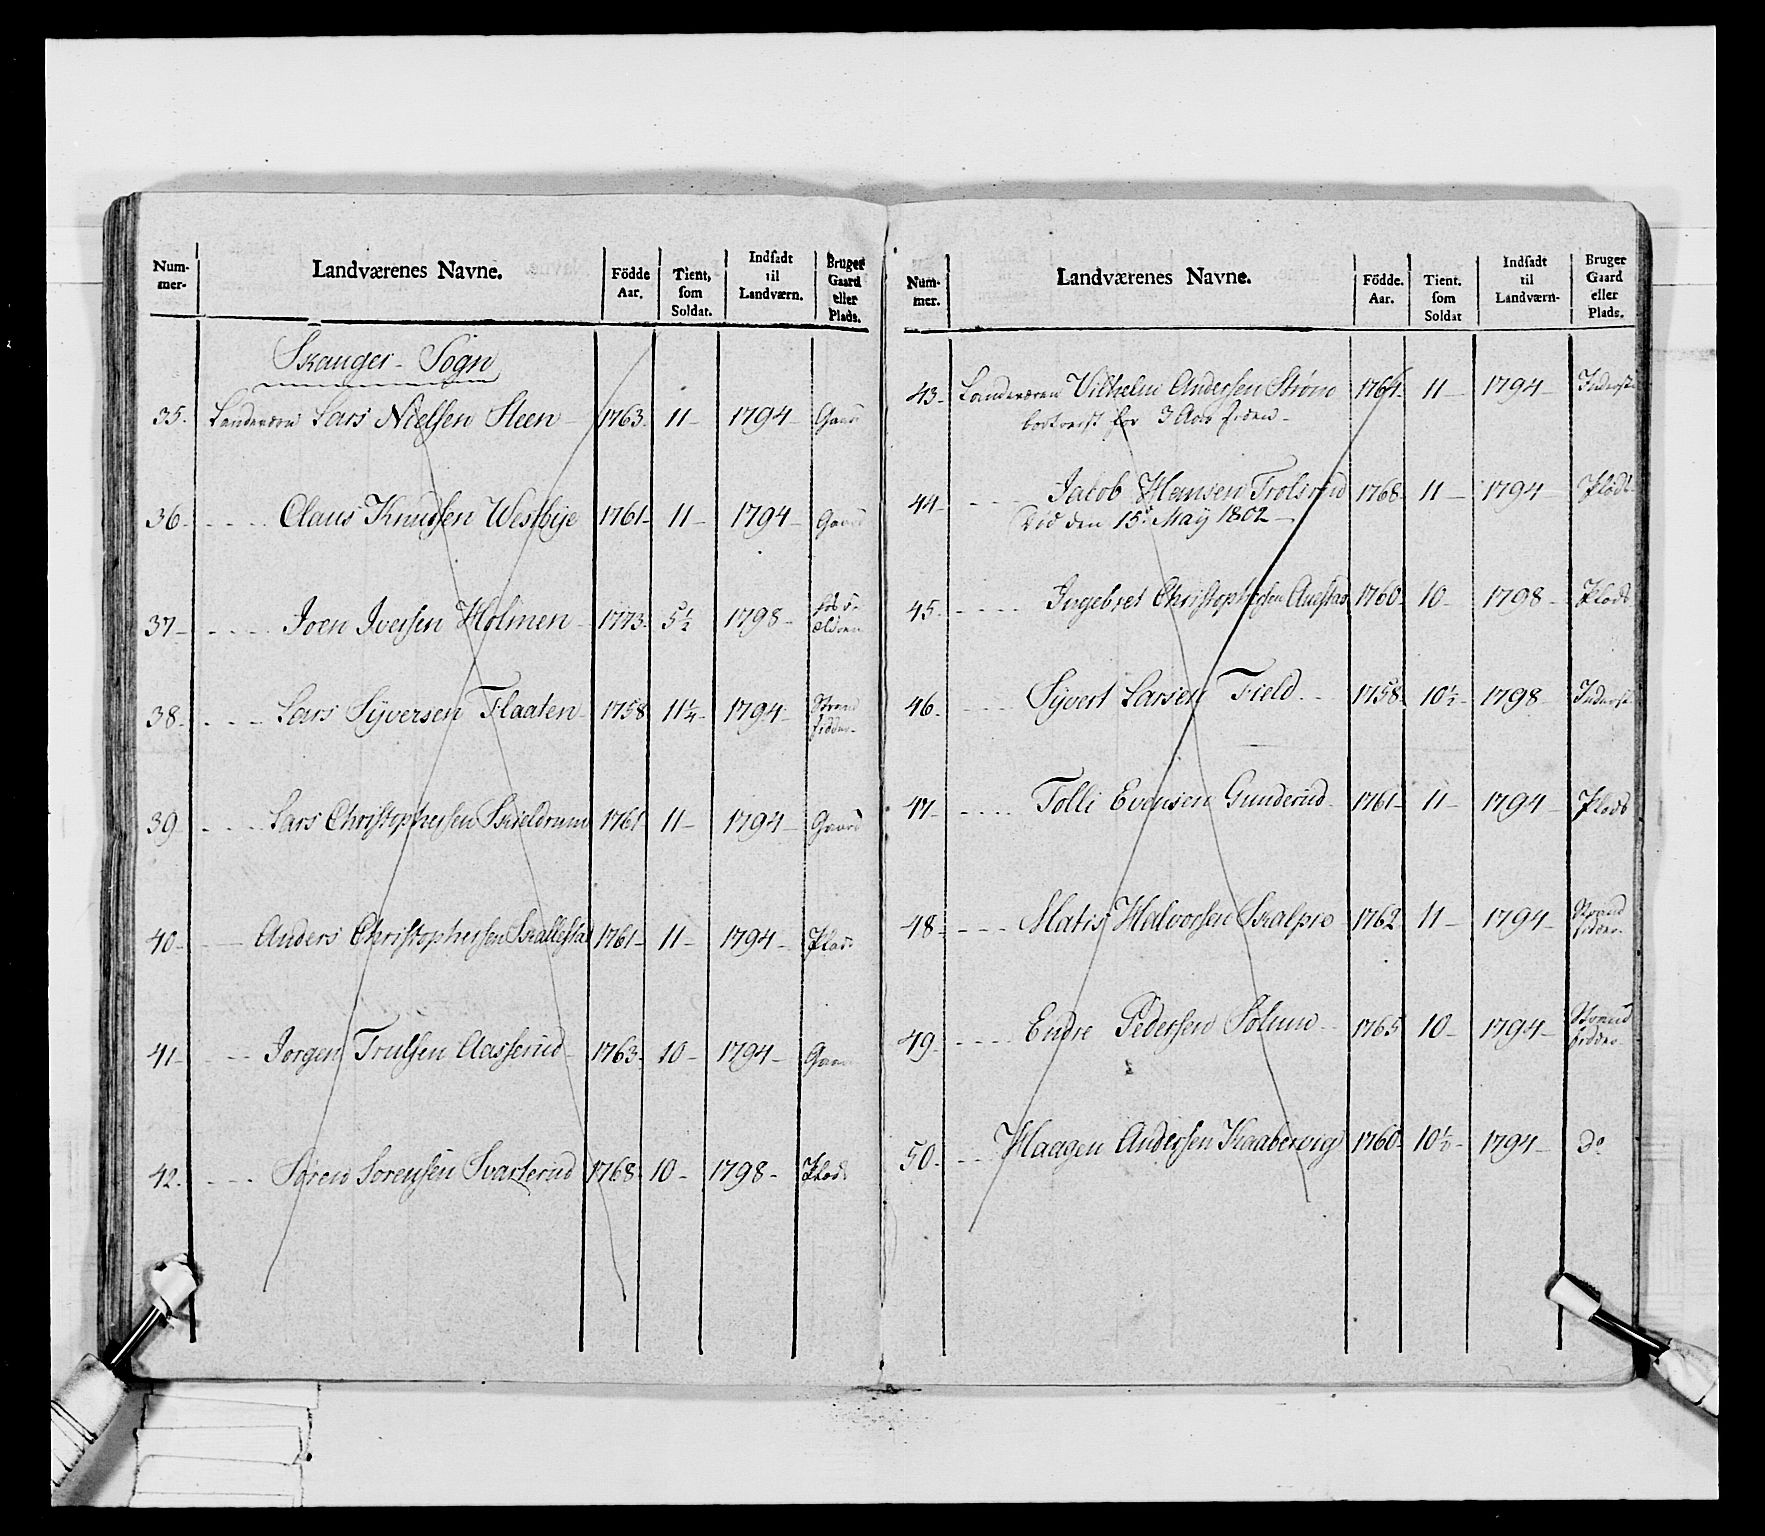 Num-mer. | Landværenes Navne. | Födde Aar. | Tient, som Soldat. | Indsadt til Landværn. | Bruger Gaard eller Plads.
Skanger - Sogn
35. Landværn Lars Nielsen Steen - 1763. 11 - 1794 - Gaard
36. - - - - Claus Knudsen Westbije 1761 - 11 - 1794 - Gaard
37 - - - - - Joen Iversen Holmen - 1773. 5½ 1798 -
38. - - - - Lars Sÿversen Flaaten - 1758 11¼ - 1794 - Strand sidder.
39 - - - - Lars Christophersen Skieldrum 1761 11 - 1794 - Gaard
40 - - - Anders Christophersen Skallestad 1761 - 11 - 1794 - Plads
41 - - - Jorgen Trulsen Aasserud - 1763. 10 - 1794 - Gaard
42. - - - Sören Sorensen Svarterud 1768 10 - 1798 - Plads
Num-mer. | Landværenes Navne. | Födde. Aar. | Tient. som Soldat | Indsadt til Landværn- | Bruger Gaard eller Plads.
43. Landværen Vilhelm Andersen Ström 1764. 11 - 1794 - Inderst
bortreist for 3 Aar siden -
44 - - - - Jacob Hansen Trolsrud 1768 11 - 1794 - Plads
Död den 15de Maÿ 1802 -
45. - - - - Ingebret Christophersen Auestad 1760 - 10 - 1798 - Plads
46. - - - - Sÿvert Larsen Field. - 1758. 10½ - 1798 - Inderst
47. - - - - Tolli Evensen Gunderud. 1761 - 11 - 1794 - Plads
48. - - - Matis Halvorsen Skalpro 1762 11 - 1794 - Strand sidder.
49. - - - - Endre Pedersen Solum - 1765 10 - 1794 - Strand sidder
50. - - Haagen Andersen Kaaberwig 1760. 10½ - 1794 - do